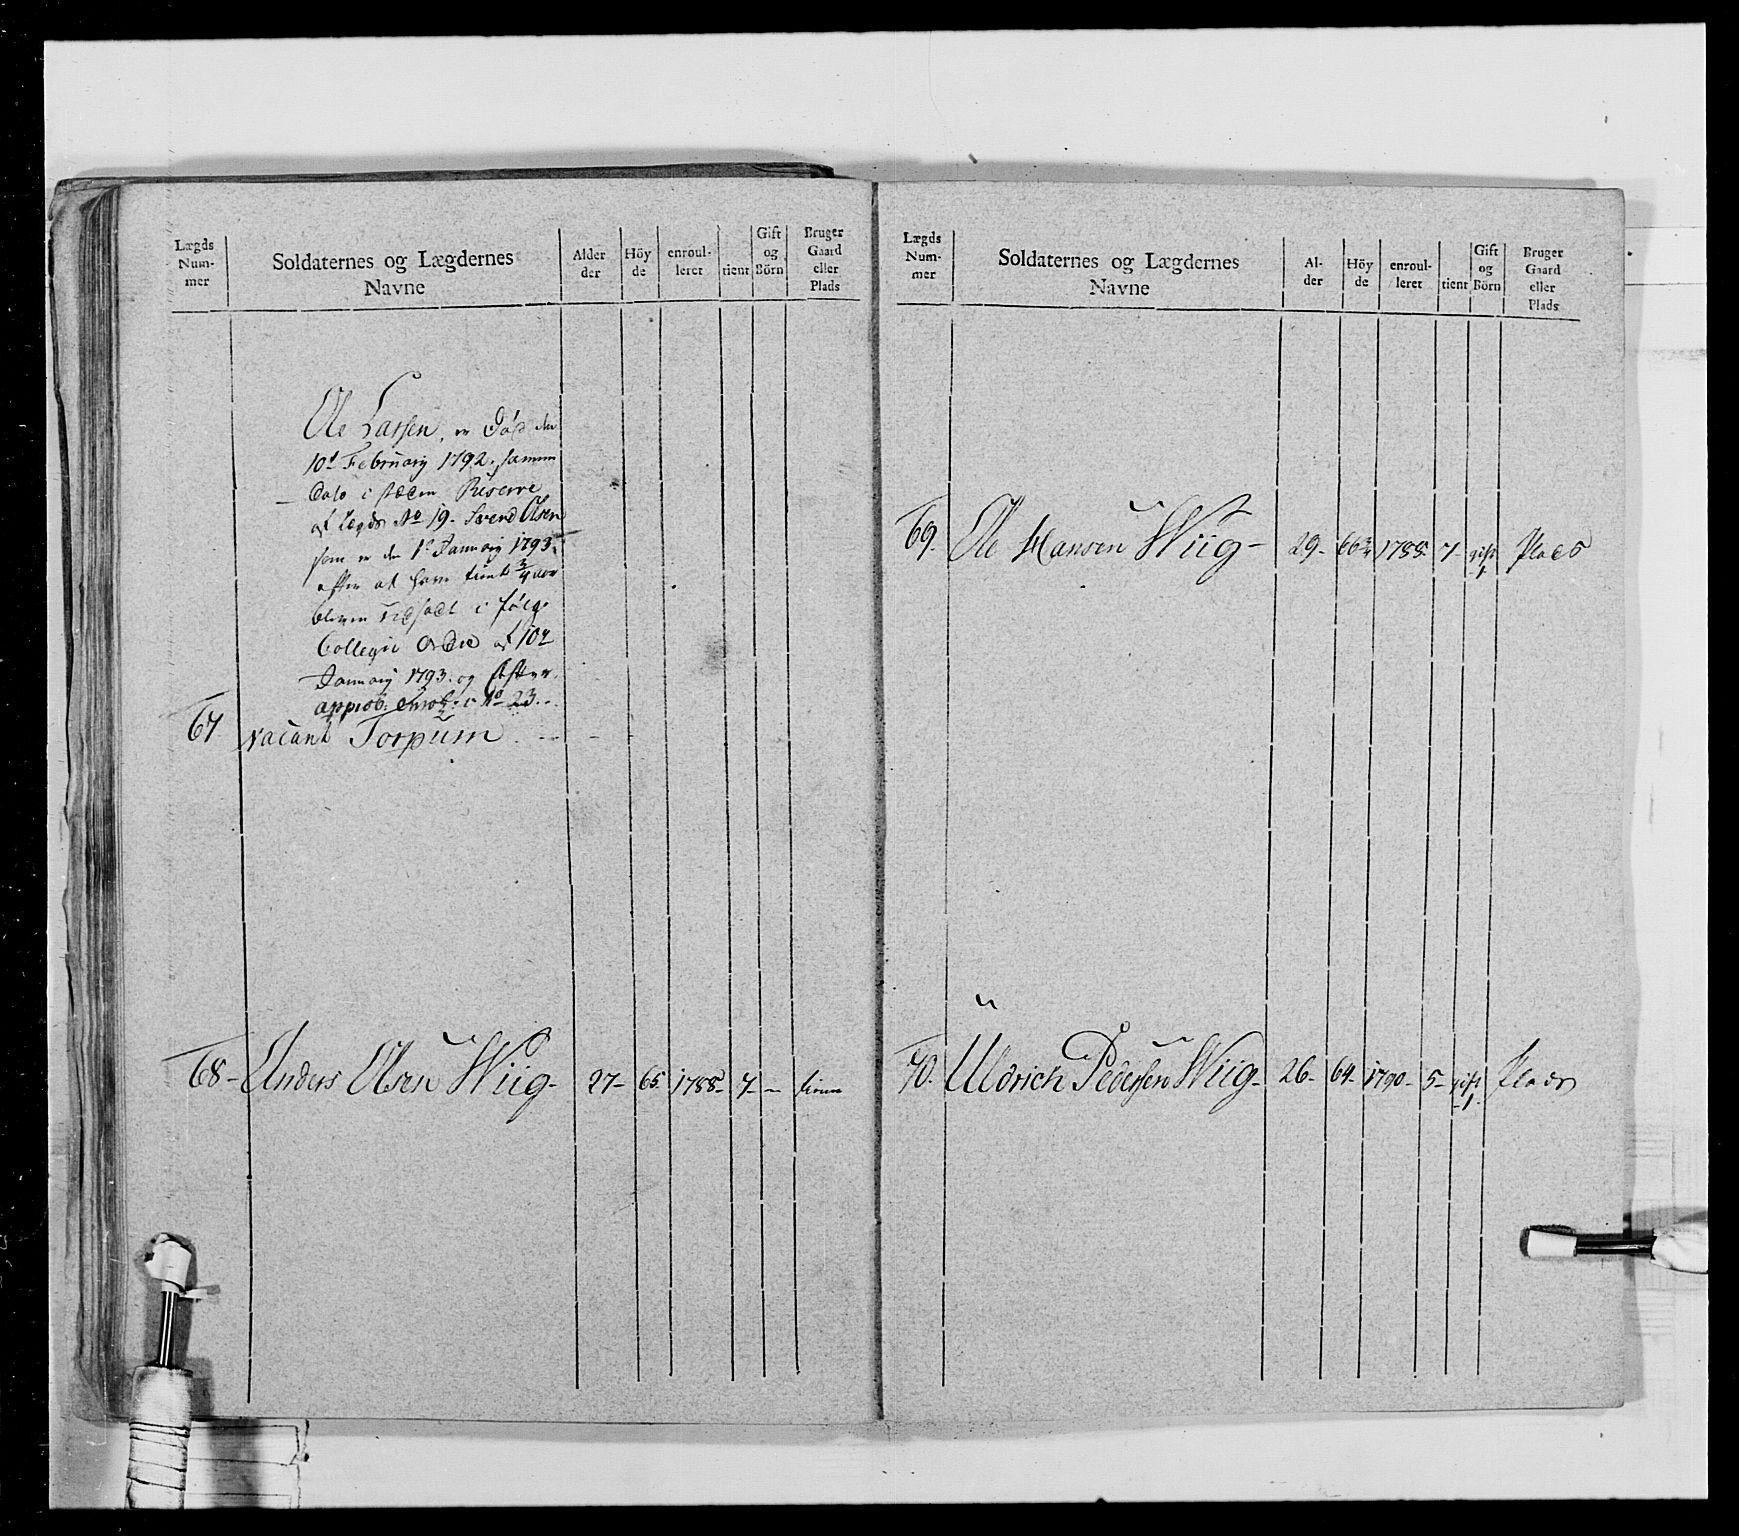 Lægds Num- mer
Soldaternes og Lægdernes Navne
Alder der
Höy de
enroul- leret
tient
Gift og Börn
Bruger Gaard eller Plads
Ole Larsen, er Död den
10d February 1792. samme
Dato i stæden Reserve
af Lægds No 19. Svend Olsen
som er den 1d January 1793.
efter at have tient 3/4 aar
bleven udsadt i følge
Collegii Ordre af 10d
January 1793. og
approb. i No 23.
67 vacant Torpum
68 - Anders Olsen Wiig - 27 - 65 1788 - 7 - - tienne
Lægds Num- mer
Soldaternes og Lægdernes Navne
Al- der
Höy de
enroul- leret
tient
Gift og Börn
Bruger Gaard eller Plads
69. Ole Hansen Wiig - 29 - 66 3/4 1788 7 - gift 1 Plads
70. Uldrich Pedersen Wiig - 26 - 64 - 1790 - 5 - gift 1 Plads